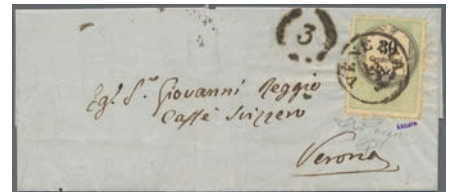 3
VENEZIA
Egl. Sr. Giovanni Reggio
Caffè Svizzero
Verona